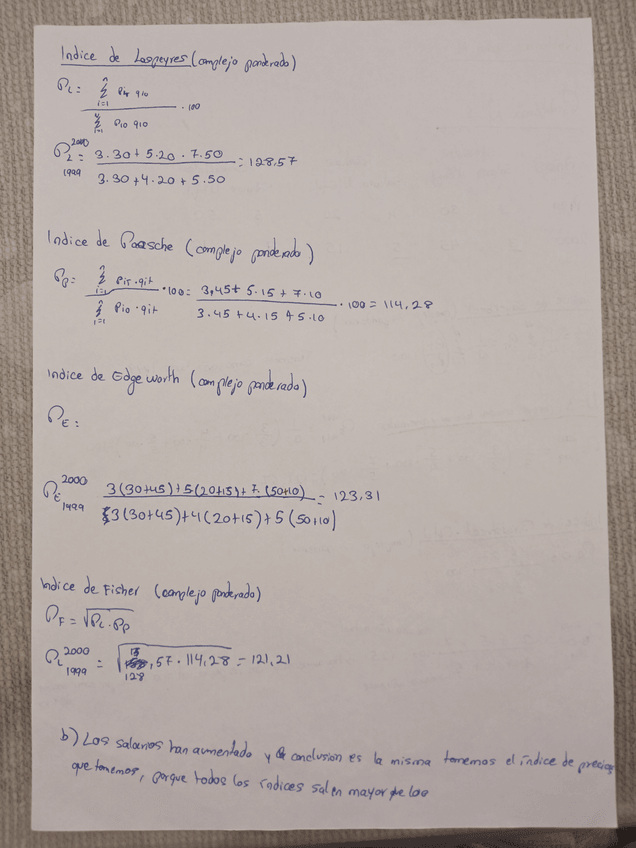 Indice de Laspeyres (complejo ponderado)
PL = n Σ i=1 Pit qio / n Σ i=1 Pio qio · 100
PL 2000 1999 = 3.30 + 5.20 . 7.50 / 3.30 + 4.20 + 5.50 = 128,57
Indice de Paasche (complejo ponderado)
Pp = n Σ i=1 Pit · qit / n Σ i=1 Pio · qit · 100 = 3,45 + 5.15 + 7.10 / 3.45 + 4.15 + 5.10 · 100 = 114,28
Indice de Edge worth (complejo ponderado)
PE =
PE 2000 1999 = 3(30+45)+5(20+15)+7.(50+10) / 3(30+45)+4(20+15)+5(50+10) = 123,31
Indice de Fisher (complejo ponderado)
PF = √PL · Pp
PL 2000 1999 = √128,57 · 114,28 = 121,21
b) Los salarios han aumentado y la conclusion es la misma tomemos el índice de precios
que tomemos, porque todos los índices salen mayor de 100